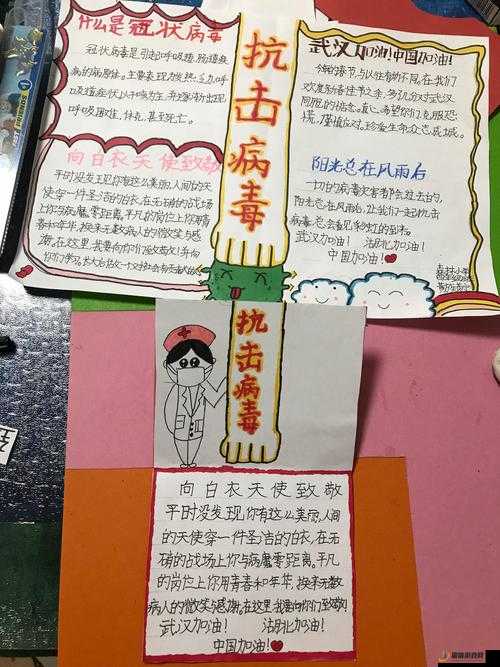 什么是冠状病毒
冠状病毒是引起呼吸道、肠道疾
病的病原体。主要表现为发热、乏力、呼
吸道症状以干咳为主，并逐渐出现
呼吸困难，休克，甚至死亡。
向白衣天使致敬
平时没发现，你有这么美丽，人间的天
使穿一件圣洁的白衣，在无硝的战场
上你与病魔零距离。平凡的岗位上你用青
春和年华，换来无数病人的微笑与感
谢。在这里，我要向你们
抗击病毒
武汉加油！中国加油！
今年的春节，与以往有的不同，在我们
欢度新春佳节之余，多了几分对武汉
同胞的惦念。衷心希望你们克服恐
慌，谨慎应对。珍爱生命众志成城。
阳光总在风雨后
一切的病毒灾害都会过去的，
阳光总在风雨后，让我们一起抗击
病毒，总会看见彩虹的到来。
武汉加油！湖北加油！
中国加油！
抗击病毒
向白衣天使致敬
平时没发现，你有这么美丽，人间
的天使穿一件圣洁的白衣，在无
硝的战场上你与病魔零距离。平凡
的岗位上你用青春和年华，换来无数
病人的微笑与感谢。在这里我要向你们致敬！
武汉加油！湖北加油！
中国加油！